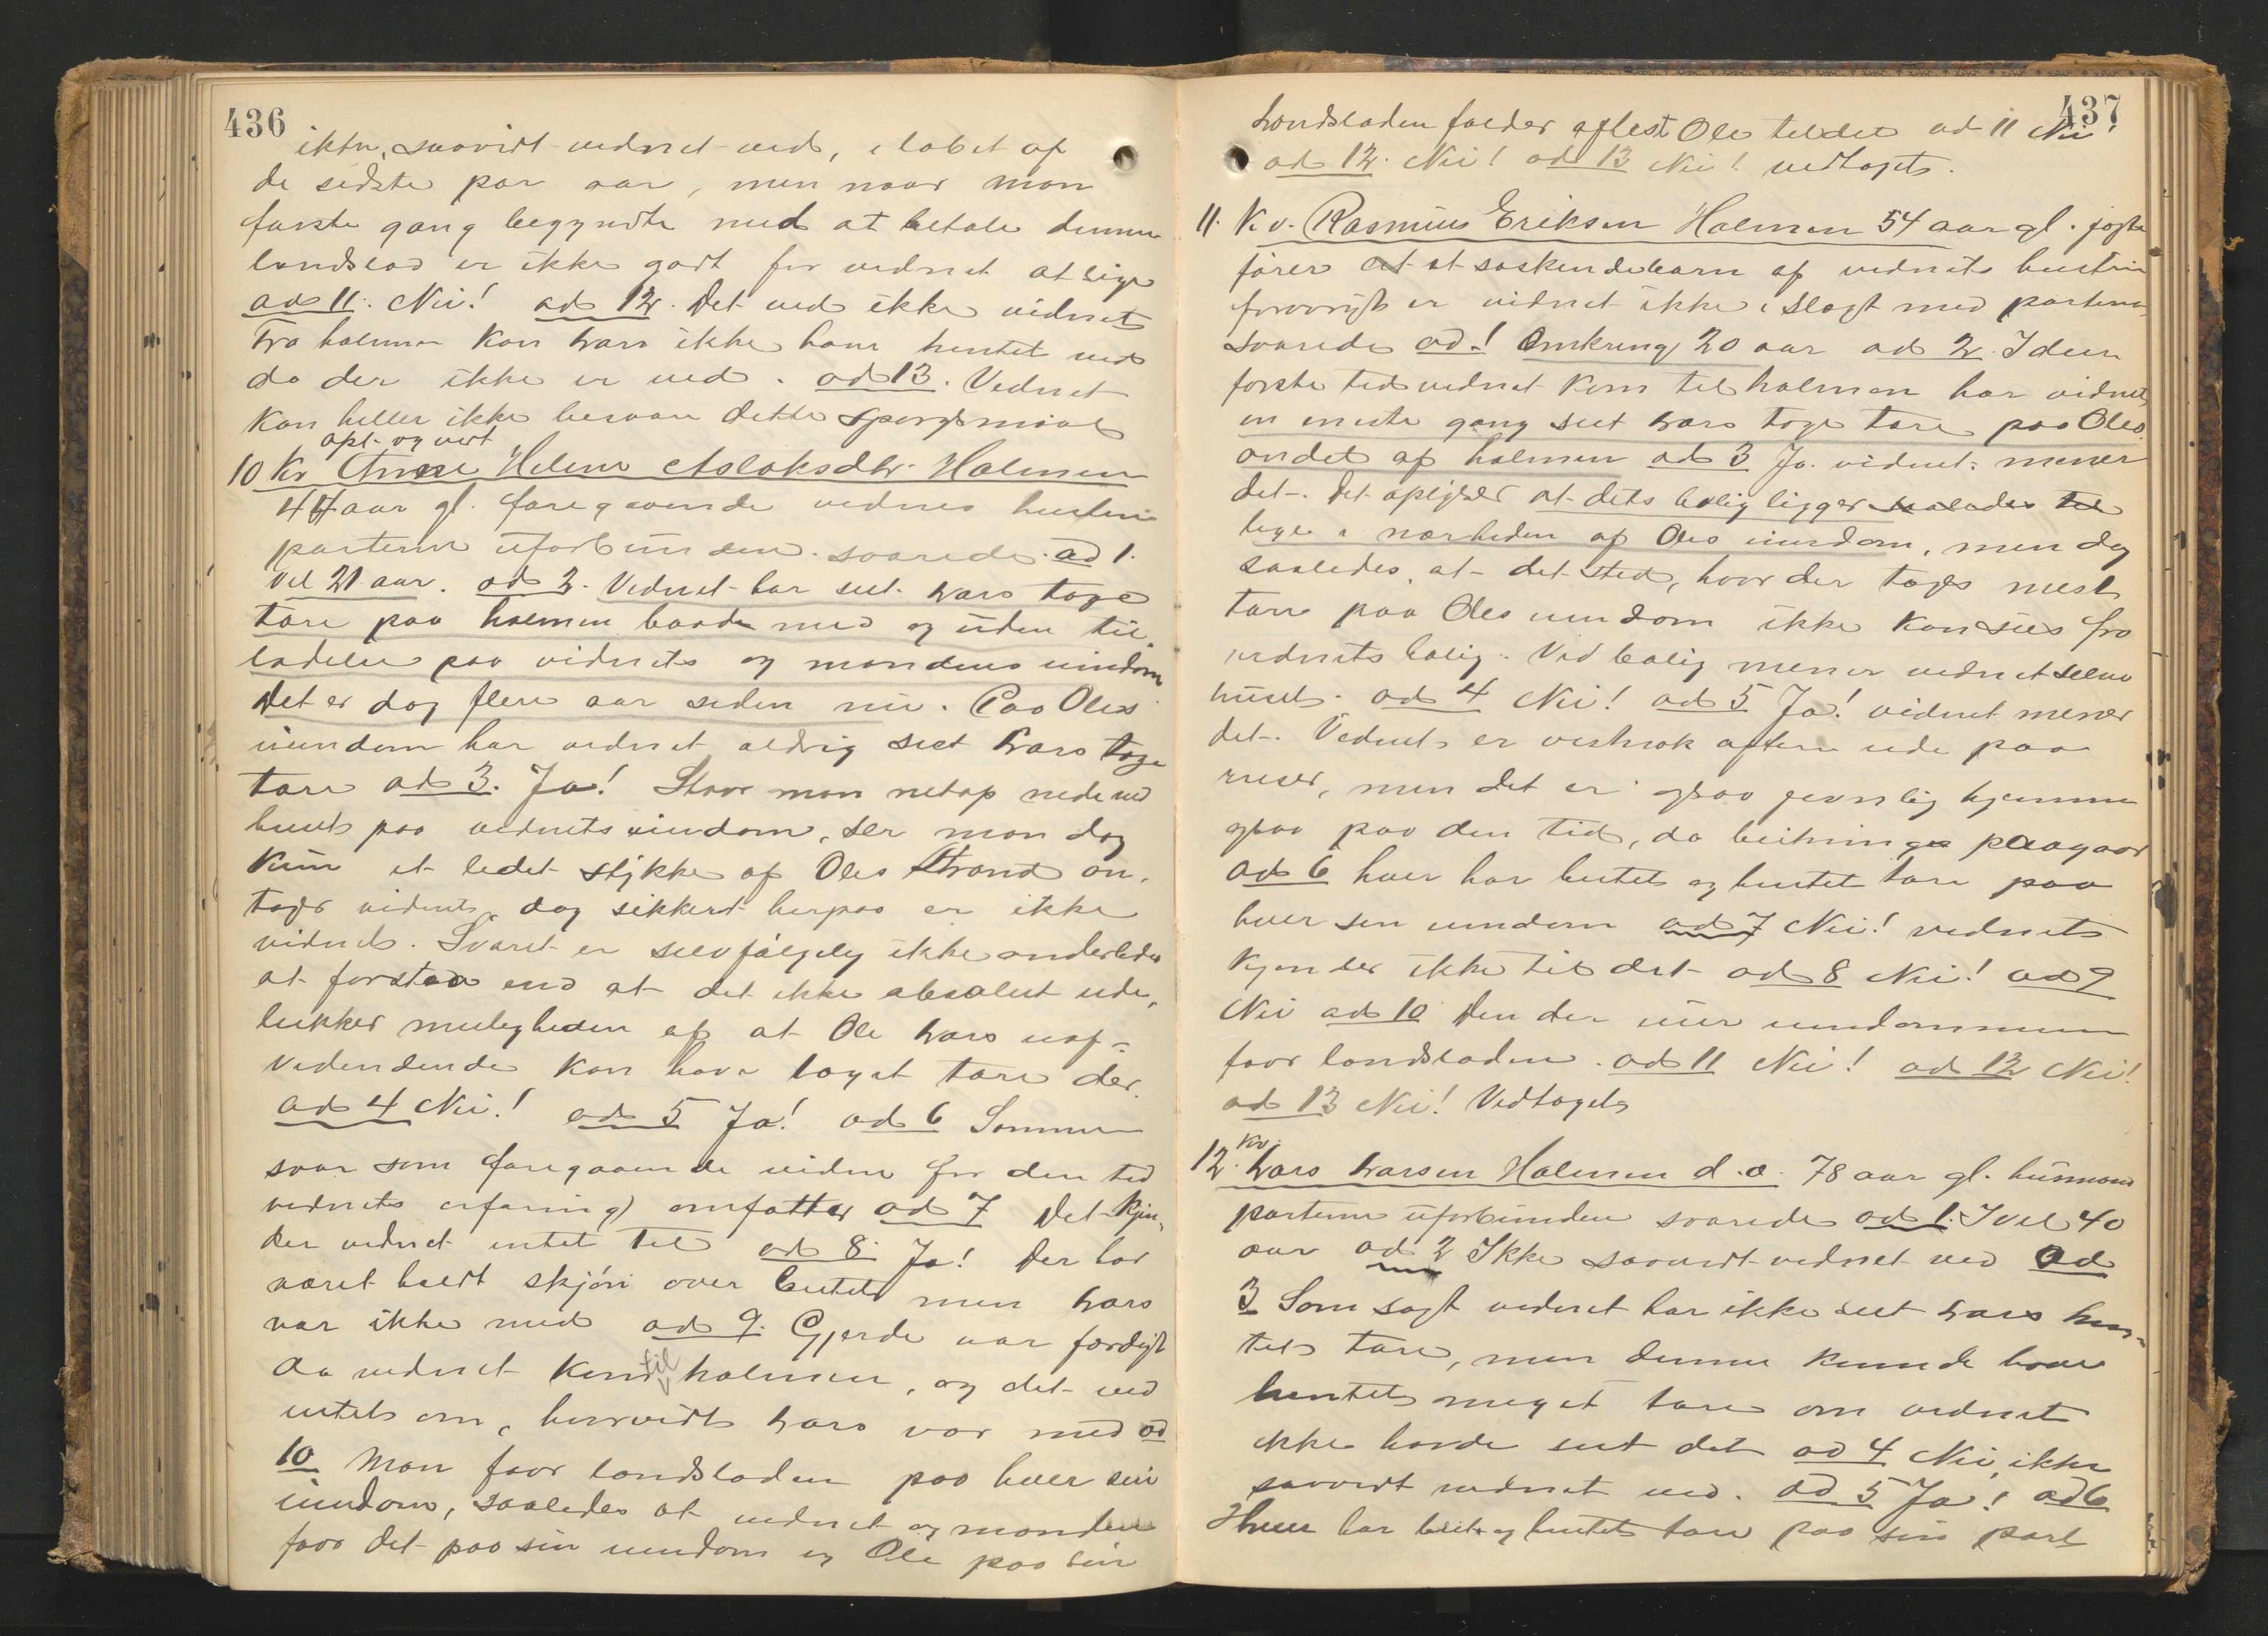 436
ikke, saavidt vidnet ved, i løbet af
de sidste par aar, men naar man
første gang begyndte med at betale denne
landslod er ikke godt for vidnet at sige
ad 11. Nei! ad 12. Det ved ikke vidnet
Fra holmen kan Lars ikke have hentet ved
da der ikke er ved. ad 13. Vidnet
kan heller ikke besvare dette spørgsmaal
opl. og vedt
10 Kv Anne Helene Aslaksdtr. Holmen
44 aar gl. foregaaende vidnes hustru
parterne uforbunden. svarede ad 1.
Vel 21 aar. ad 2. Vidnet har seet Lars tage
tare paa holmen baade med og uden til-
ladelse paa vidnets og mandens eiendom
Det er dog flere aar siden nu. Paa Oles
eiendom har vidnet aldrig seet Lars tage
tare ad 3. Ja! Staar man netop nede ved
huset paa vidnets eiendom, ser man dog
kun et lidet stykke af Oles strand an-
tager vidnet, dog sikkert herpaa er ikke
vidnet. Svaret er selvfølgelig ikke anderledes
at forstaa end at det ikke absolut ude-
lukker muligheden af at Ole Lars uaf-
vidende kan have taget tare der.
ad 4 Nei! ad 5 Ja! ad 6 Samme
svar som foregaaende vidne for den tid
vidnets erfaring omfatter ad 7 Det kjen-
der vidnet intet til ad 8. Ja! Der har
været holdt skjøn over beitet men Lars
var ikke med ad 9. Gjerde var færdigt
da vidnet kom til holmen, og det ved
intet om, hvorvidt Lars var med ad
10 Man faar landsloden paa hver sin
eiendom, saaledes at vidnet og manden
faar det paa sin eiendom og Ole paa sin
437
Landsloden falder oftest Ole tildel ad 11 Nei!
ad 12. Nei! ad 13 Nei! vedtaget.
11. Kv. Rasmus Eriksen Holmen 54 aar gl. jagte
fører et søskendebarn af vidnets hustru
forøvrigt er vidnet ikke i slægt med parterne
svarede ad 1 Omkring 20 aar ad 2. I den
første tid vidnet kom til holmen har vidnet
en eneste gang seet Lars tage tare paa Oles
andel af holmen ad 3 Ja. vidnet mener
det. Det oplyser at dets bolig ligger saaledes til
lige i nærheden af Oles eiendom, men dog
saaledes, at det sted, hvor der tages mest
tare paa Oles eiendom ikke kan sees fra
vidnets bolig. Ved bolig mener vidnet selve
huset. ad 4 Nei! ad 5 Ja! vidnet mener
det. Vidnet er vistnok oftere ude paa
reiser, men det er ogsaa jevnlig hjemme
ogsaa paa den tid, da beitningen paagaar
ad 6 hver har beitet og hentet tare paa
hver sin eiendom ad 7 Nei! vidnet
kjender ikke til det ad 8 Nei! ad 9
Nei ad 10 Den der eier eiendommen
faar landsloden. ad 11 Nei! ad 12 Nei!
ad 13 Nei! Vedtaget
12. Kv. Lars Larsen Holmen d.æ. 78 aar gl. husmand
parterne uforbunden svarede ad 1. I vel 40
aar ad 2 Ikke saavidt vidnet ved ad
3 Som sagt vidnet har ikke seet Lars hen-
tet tare, men denne kunde have
hentet meget tare om vidnet
ikke havde seet det ad 4 Nei, ikke
saavidt vidnet ved. ad 5 Ja! ad 6
Hver har beitet og hentet tare paa sin part